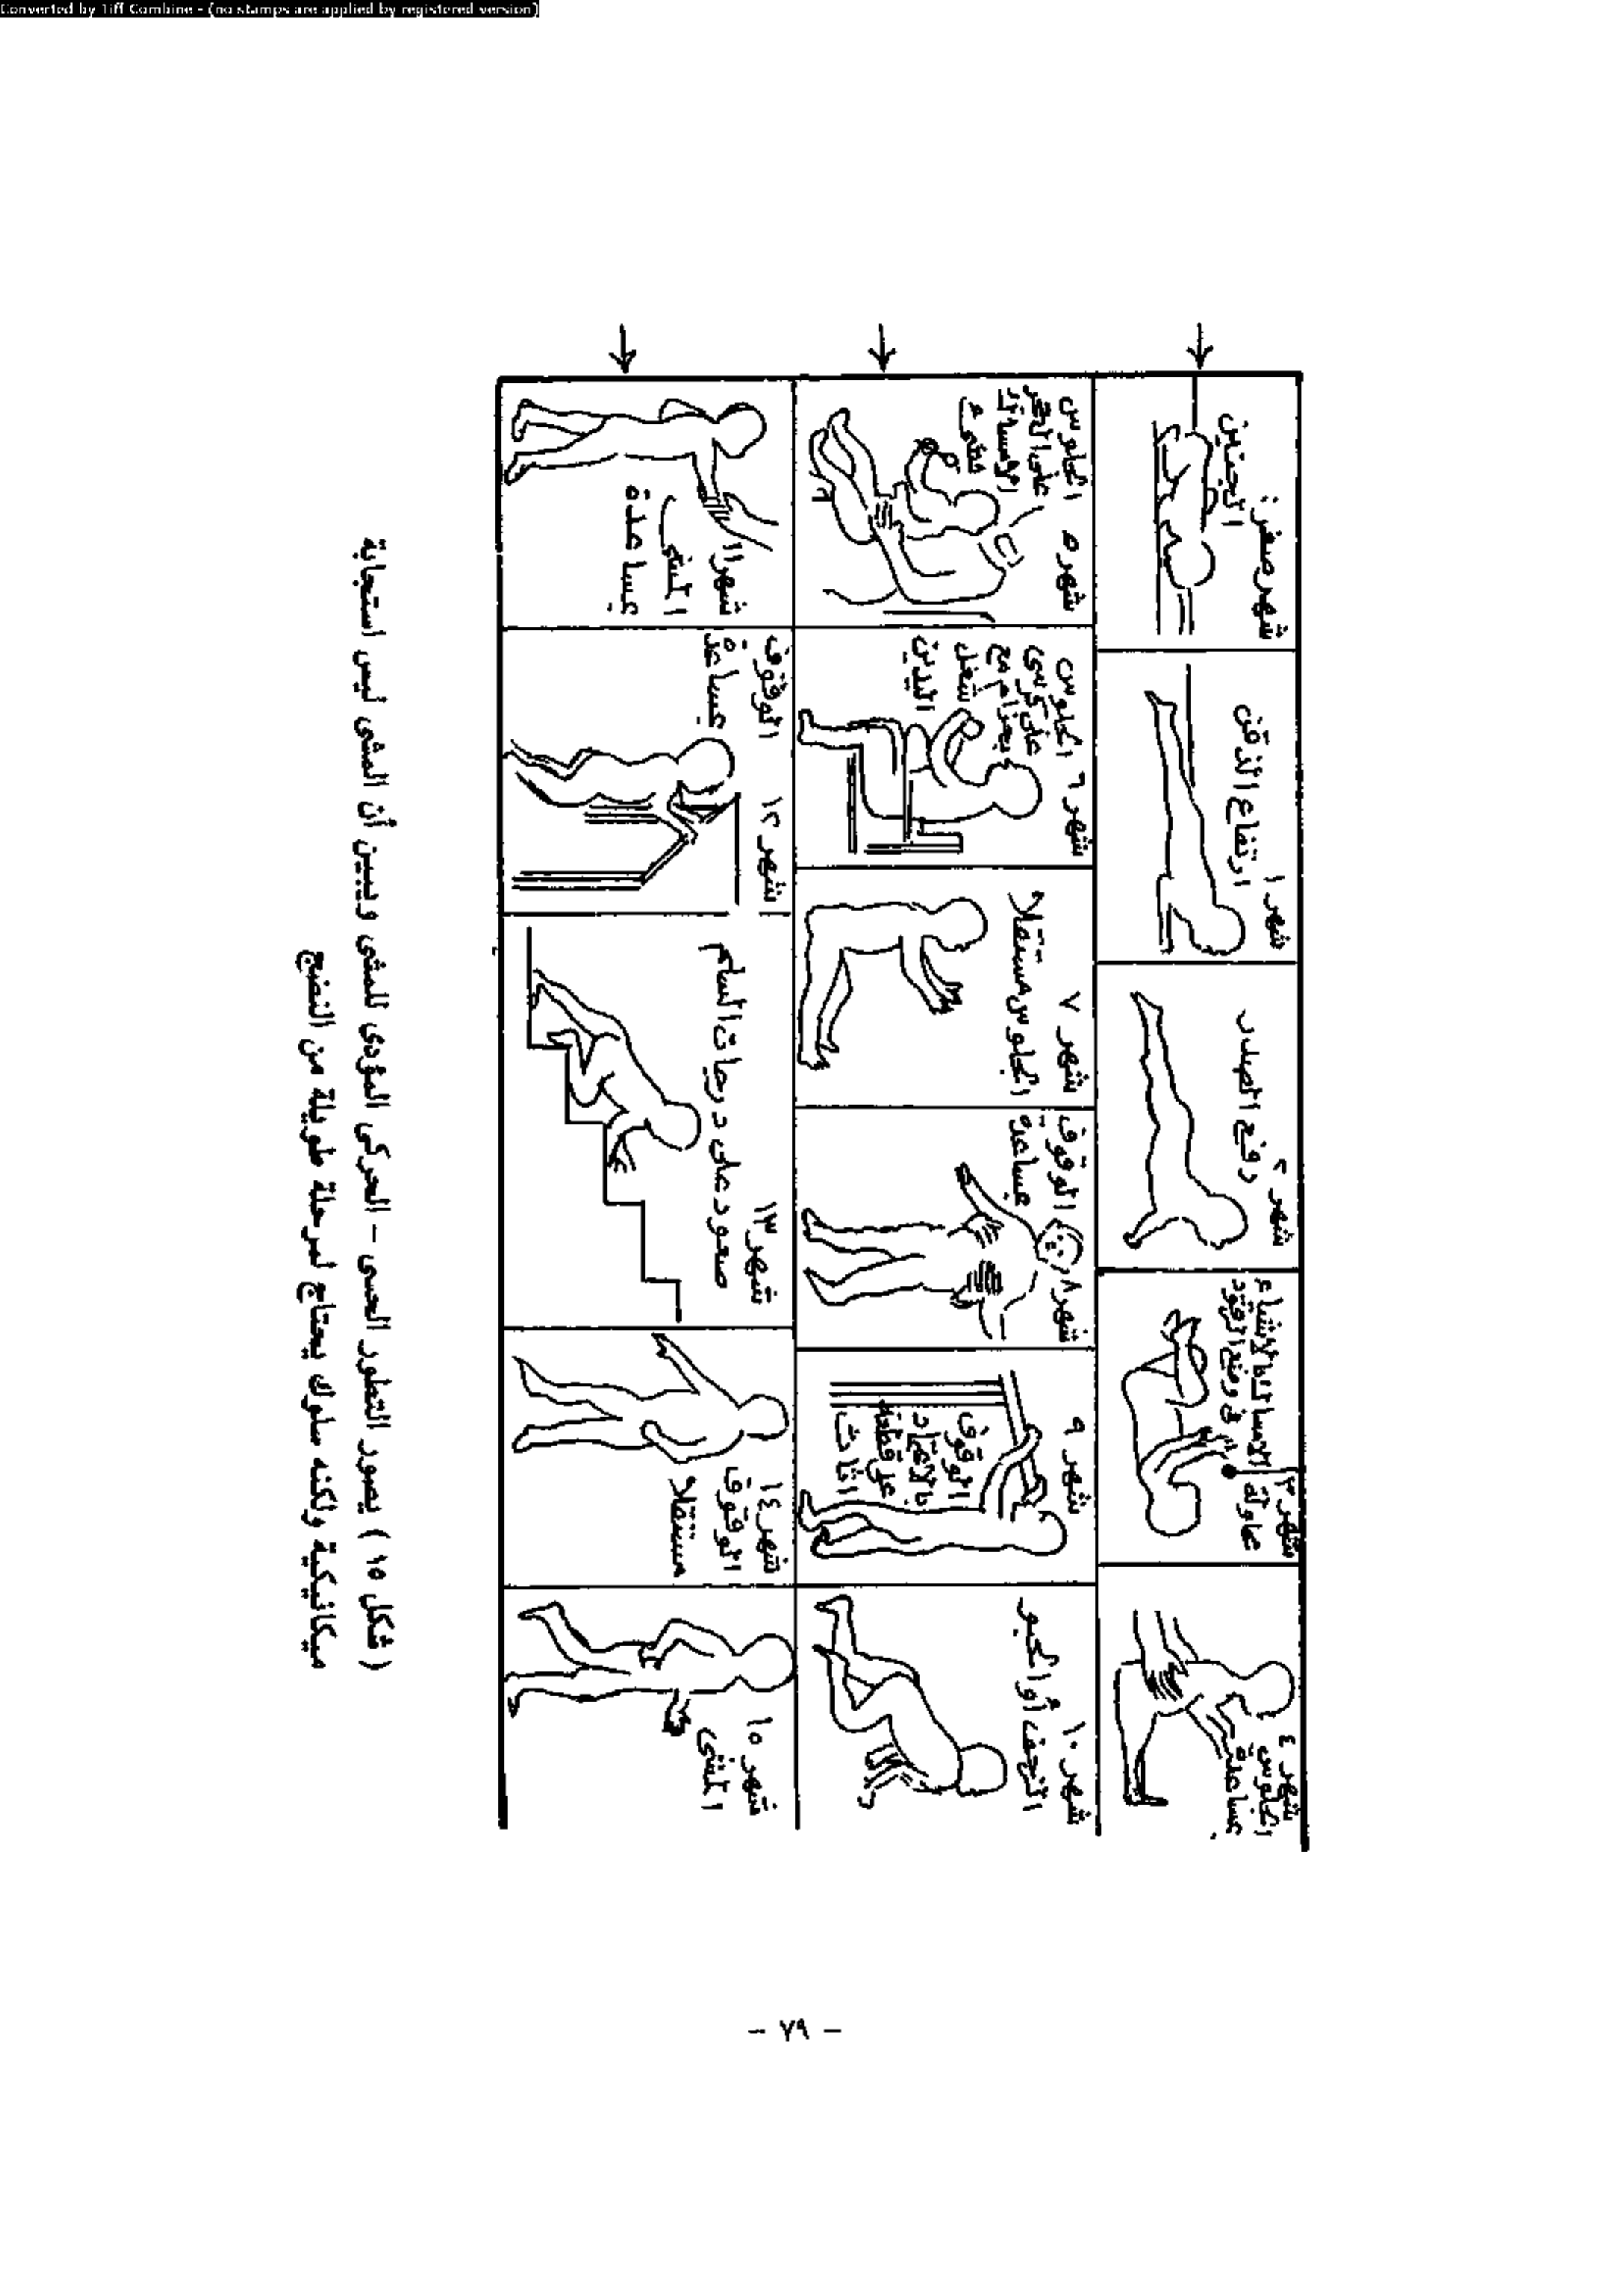 Converted by Tiff Combine - (no stamps are applied by registered version)
شهر صفر:
الجنين
شهر ١
ارتفاع الذقن
شهر ٢
رفع الصدر
شهر ٣
محاولة الامساك بالأشياء
فى وضع الرقود
شهر ٤
الجلوس
بمساعدة
شهر ٥
الجلوس
على الحجر
والإمساك
شهر ٦
الجلوس
على كرسى
بحزام مع
شغل
اليدين
شهر ٧
الجلوس مستقلا
شهر ٨
الوقوف
بمساعدة
شهر ٩
الوقوف
بالاعتماد
على قطعة
اثاث
شهر ١٠
الزحف أو الحبو
شهر ١١
المشى
بمساعدة
شهر ١٢
الوقوف
بمساعدة
شهر ١٣
صعود على درجات السلم
شهر ١٤
الوقوف
مستقلا
شهر ١٥
المشى
( شكل ١٥ ) يصور التطور الحسى - الحركى المؤدى للمشى ويبين أن المشى ليس استجابة
ميكانيكية ولكنه سلوك يحتاج لمرحلة طويلة من النضج
- ٧٩ -